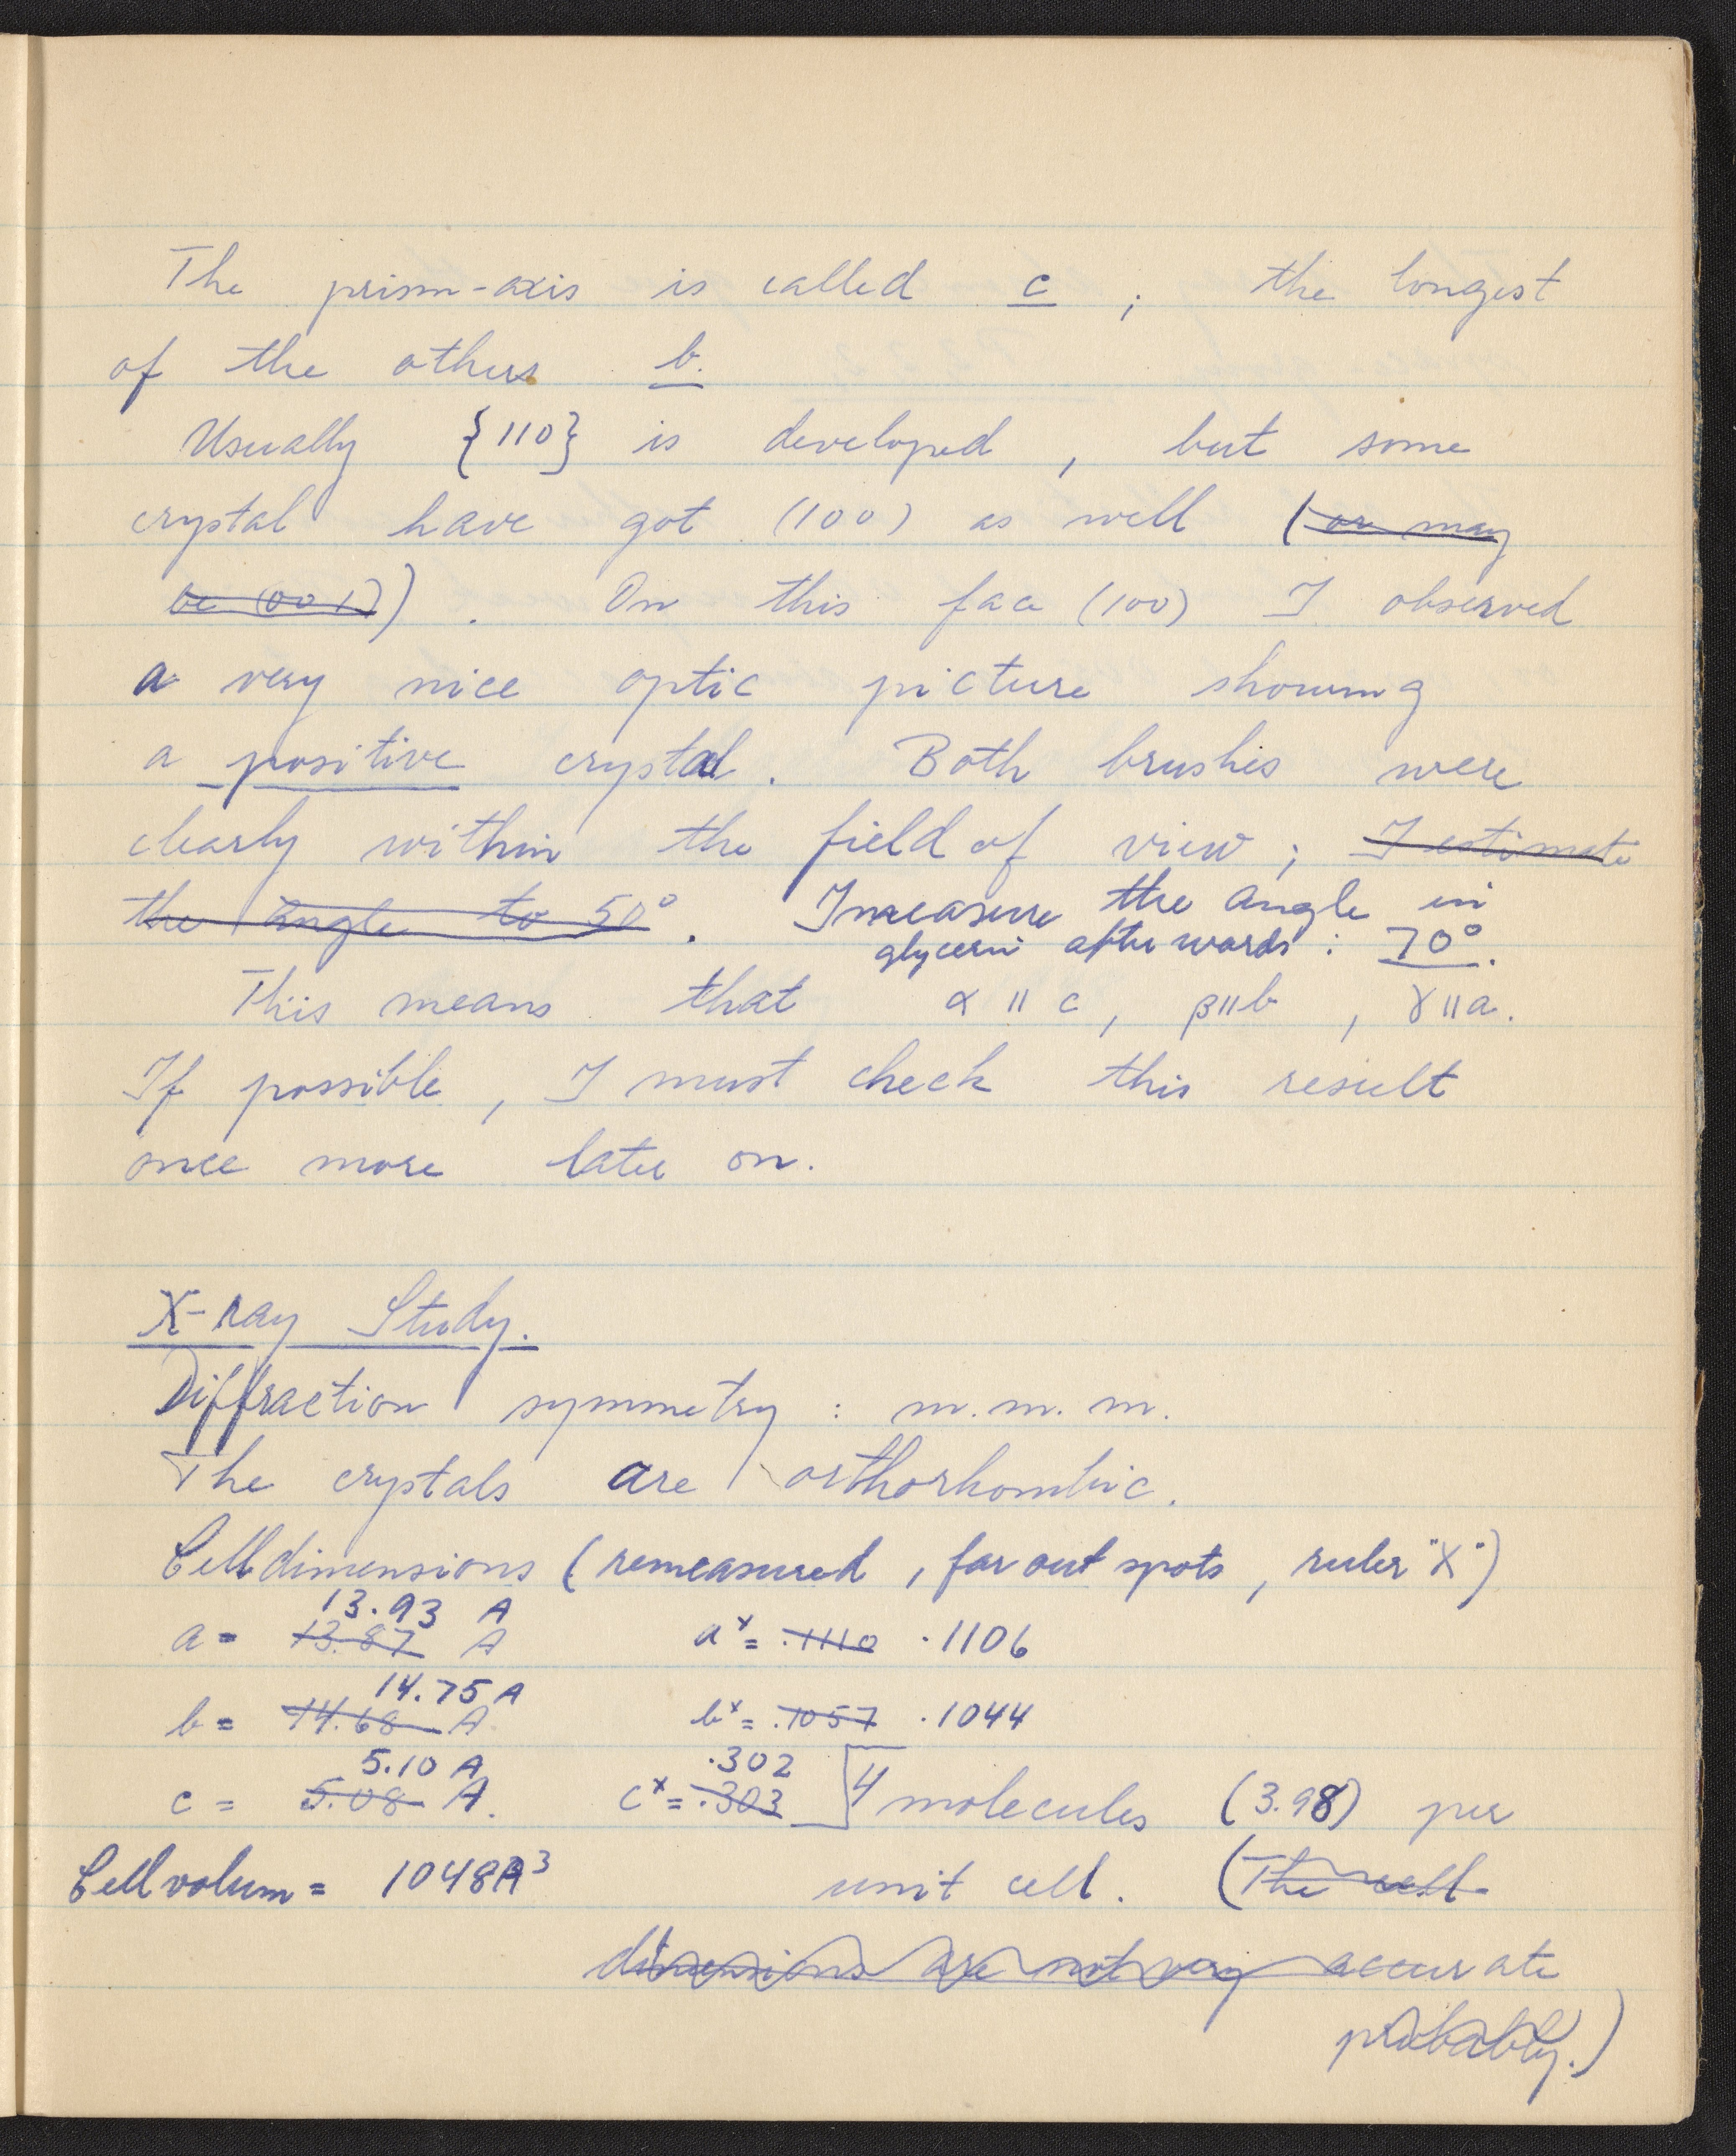 The prism-axis is called c ; the longest
of the others b.
Usually {110} is developed , but some
crystal have got (100) as well (or may
be (001)) . On this face (100) I observed
a very nice optic picture showing
a positive crystal . Both brushes were
clearly within the field of view ; I estimate
the angle to 50° . I measure the angle in
glycerin afterwards : 70°.
This means that α || c , β || b , γ || a .
If possible , I must check this result
once more later on .
X-ray Study.
Diffraction symmetry : m. m. m.
The crystals are orthorhombic.
Cell dimensions ( remeasured , far out spots , ruler "X" )
13.93 A
a = 13.87 A a* = .1110 .1106
14.75 A
b = 14.68 A b* = .1057 .1044
5.10 A .302
c = 5.08 A. c* = .303 4 molecules (3.98) per
Cell volum = 1048 A³ unit cell . (The cell
dimensions are not very accurate
probably.)